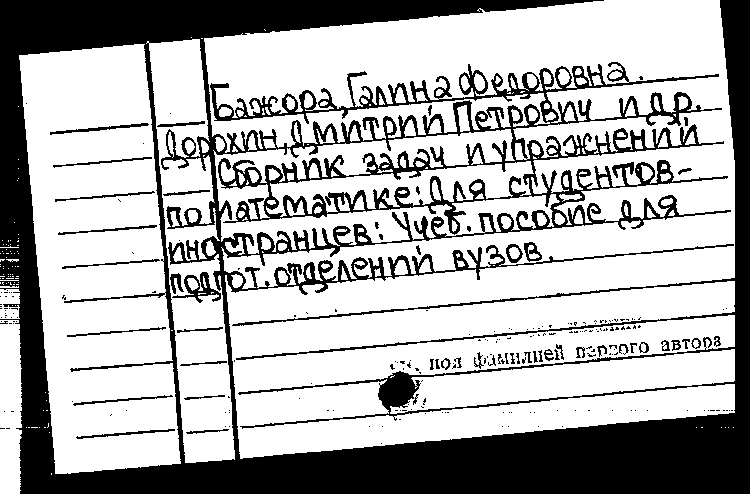 Бажора, Галина Федоровна.
Дорохин, Дмитрий Петрович и др.
Сборник задач и упражнений
по математике: Для студентов-
иностранцев: Учеб. пособие для
подгот. отделений вузов.
под фамилией первого автора